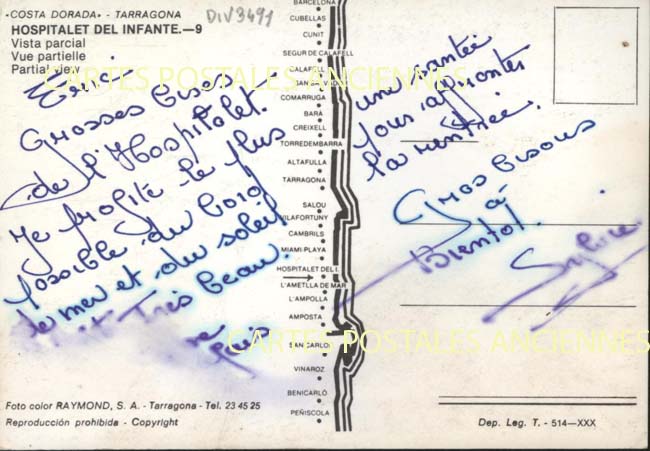 «COSTA DORADA» - TARRAGONA
HOSPITALET DEL INFANTE.—9
Vista parcial
Vue partielle
Partial view
DIV3491
CARTES POSTALES ANCIENNES
Grosses bises
de l'Hospitalet.
Je profite le plus
possible du bord
de mer et du soleil
Très beau.
une
pour affronter
la rentrée.
Gros bisous
à
Bientôt.
Sylvie.
BARCELONA
CUBELLAS
CUNIT
SEGUR DE CALAFELL
CALAFELL
COMARRUGA
BARÁ
CREIXELL
TORREDEMBARRA
ALTAFULLA
TARRAGONA
SALOU
VILAFORTUNY
CAMBRILS
MIAMI-PLAYA
HOSPITALET DEL I.
L'AMETLLA DE MAR
L'AMPOLLA
AMPOSTA
SAN CARLOS
VINAROZ
BENICARLÓ
PEÑISCOLA
CARTES POSTALES ANCIENNES
Foto color RAYMOND, S. A. - Tarragona - Tel. 23 45 25
Reproducción prohibida - Copyright
Dep. Leg. T. - 514—XXX